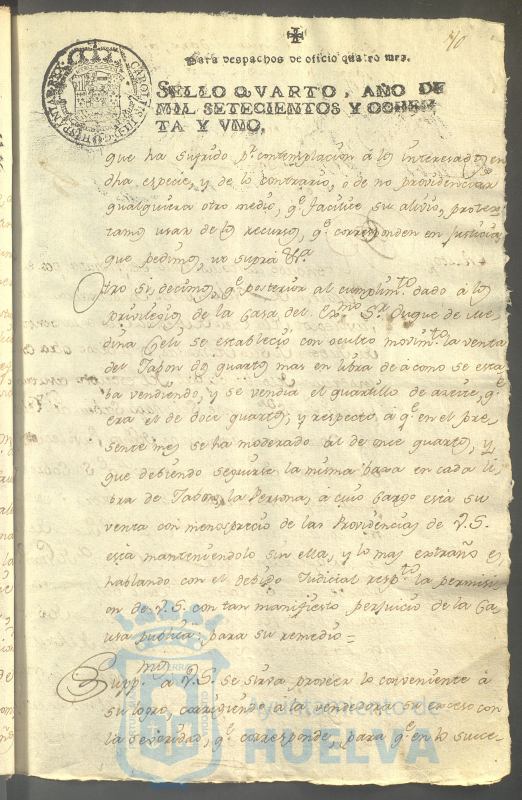 40
Para despachos de oficio quatro mrs.
SELLO QVARTO, AÑO DE
MIL SETECIENTOS Y OCHEN-
TA Y VNO.
CAROLVS III D G HISPANIAR REX
que ha sufrido pr. contemplacion á los interesados en
dha especie, y de lo contrario, o de no providenciar
qualquiera otro medio, qe. facilite su alivio, protes-
tamos usar de los recursos, qe. corresponden en justicia
que pedimos, ut supra &a
Otro si decimos, qe. posterior al cumplimto. dado á los
privilegios de la Casa del Exmo. Sr. Duque de Me-
dina Celi se estableció con oculto movimto. la venta
del Jabon dos quartos mas en libra de a como se esta-
ba vendiendo, y se vendia el quartillo de azeite, qe.
era el de doce quartos; y respecto á qe. en el pre-
sente mes se ha moderado al de once quartos, y
que debiendo seguirse la misma baxa en cada li-
bra de Jabon, la Persona, á cuio cargo está su
venta con menosprecio de las Providencias de V.S.
está manteniendolo sin ella, y lo mas extraño es,
hablando con el debido Judicial respto. la permisi-
on de V.S. con tan manifiesto perjuicio de la Ca-
usa publica; para su remedio =
Suppmos. a V.S. se sirva proveer lo conveniente á
su logro, corrigiendo á la vendedora su exceso con
la severidad, qe. corresponde, para qe. en lo succe-
Ayuntamiento de
HUELVA